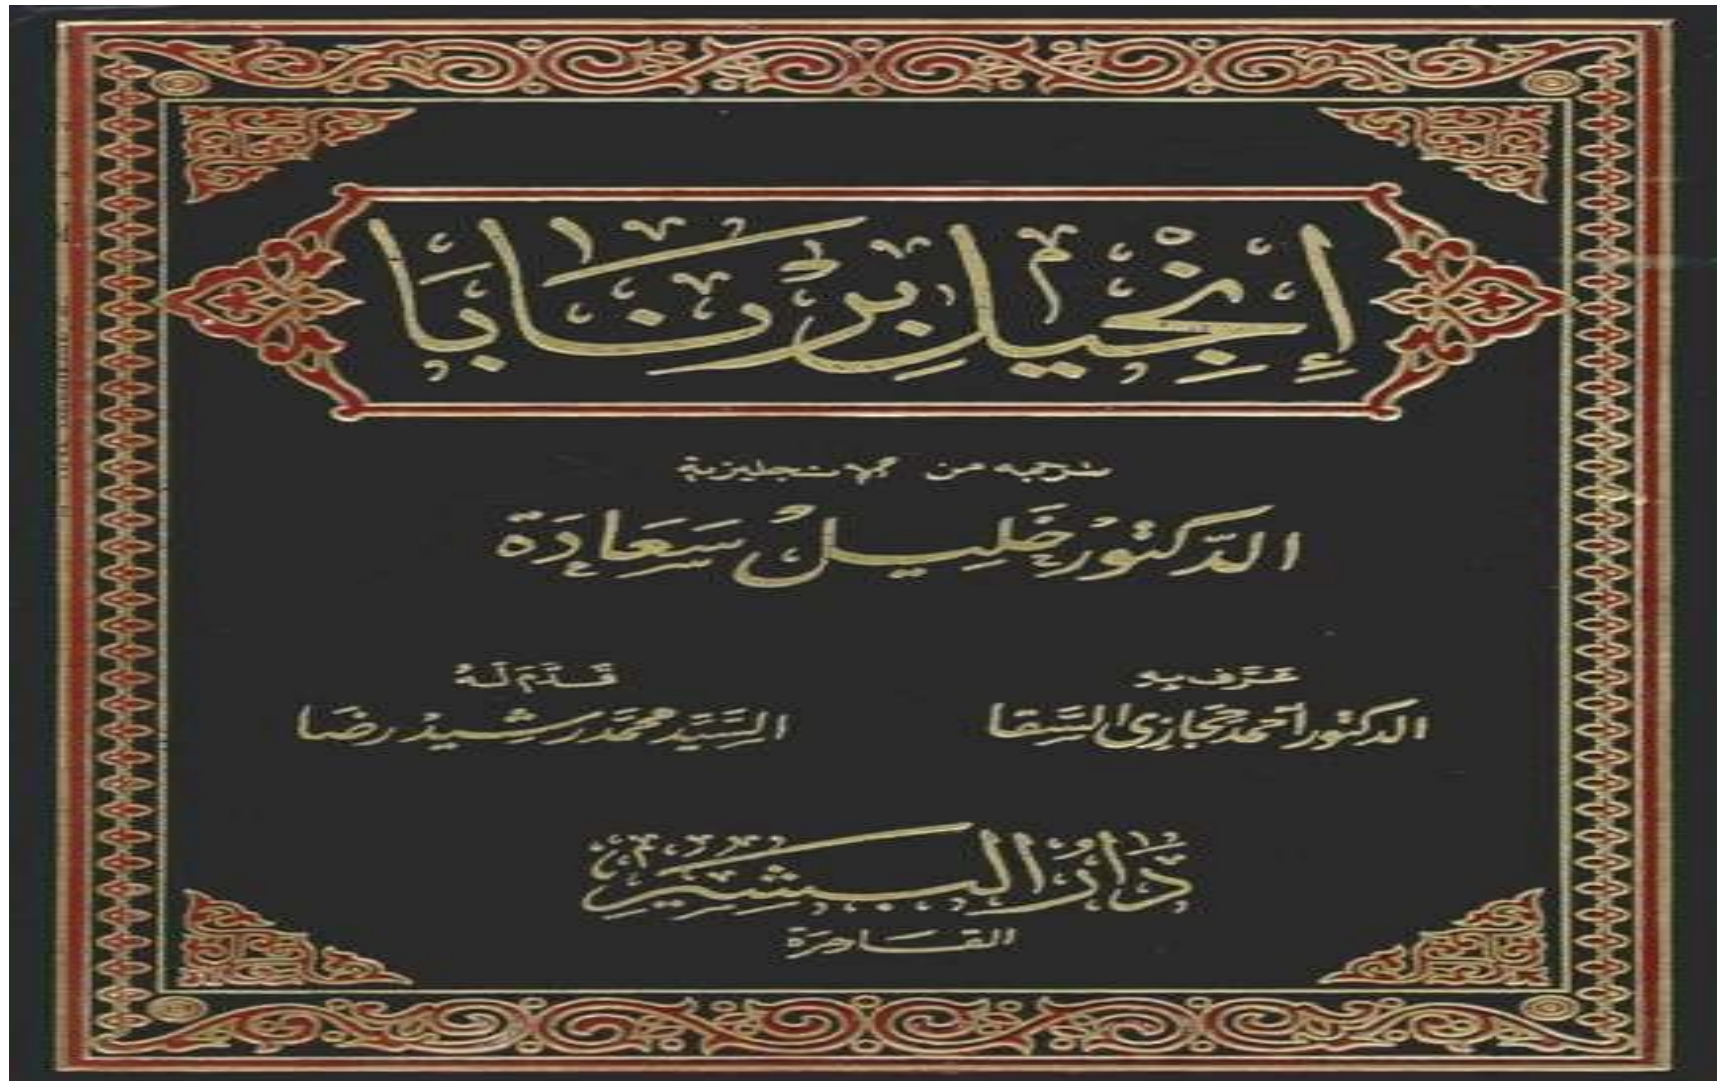 إِنجِيل بِرْنَابَا
ترجمه من الإنجليزية
الدّكتُور خَلِيلُ سَعَادَة
عَرَّفَ بِهِ
قَدَّمَ لَهُ
الدكتور أحمد حجازي السَّقا
السَّيِّد محمَّد رَشِيدْ رِضَا
دَارُ البَشِيرِ
القَاهِرَة